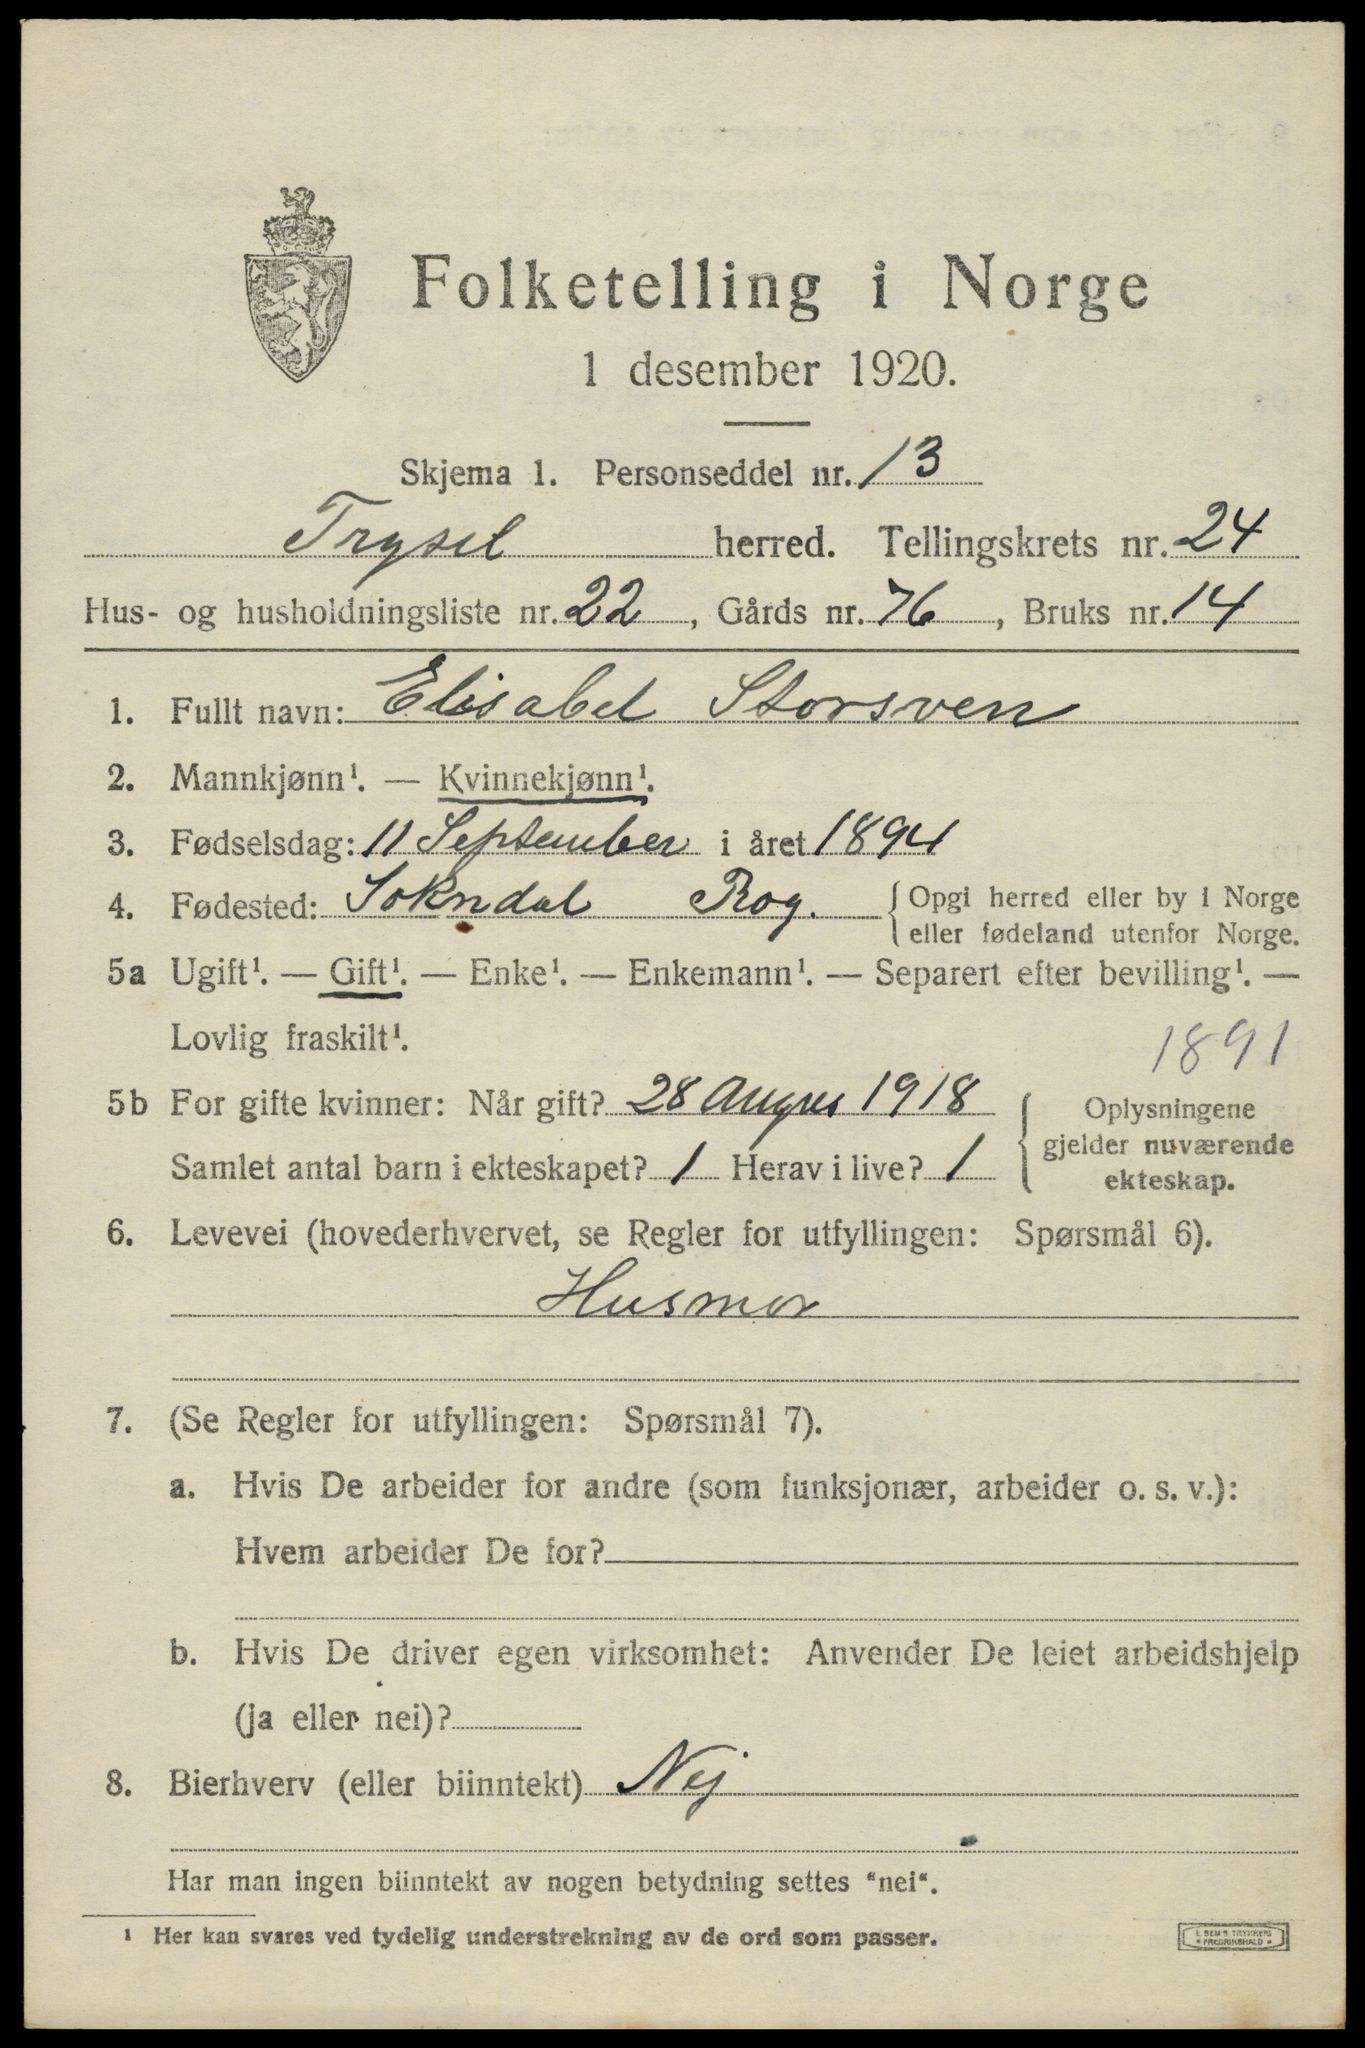 Folketelling i Norge
1 desember 1920.
Skjema 1. Personseddel nr. 13
Trysil herred. Tellingskrets nr. 24
Hus- og husholdningsliste nr. 22, Gårds nr. 76, Bruks nr. 14
1. Fullt navn: Elisabet Storsven
2. Mannkjønn¹. — Kvinnekjønn¹.
3. Fødselsdag: 11 September i året 1894
4. Fødested: Sokndal Rog. { Opgi herred eller by i Norge
eller fødeland utenfor Norge.
5a Ugift¹. — Gift¹. — Enke¹. — Enkemann¹. — Separert efter bevilling¹. —
Lovlig fraskilt¹.
1891
5b For gifte kvinner: Når gift? 28 1918
Samlet antal barn i ekteskapet? 1 Herav i live? 1
{ Oplysningene
gjelder nuværende
ekteskap.
6. Levevei (hovederhvervet, se Regler for utfyllingen: Spørsmål 6).
Husmor
7. (Se Regler for utfyllingen: Spørsmål 7).
a. Hvis De arbeider for andre (som funksjonær, arbeider o. s. v.):
Hvem arbeider De for?
b. Hvis De driver egen virksomhet: Anvender De leiet arbeidshjelp
(ja eller nei)?
8. Bierhverv (eller biinntekt) Nej
Har man ingen biinntekt av nogen betydning settes "nei".
¹ Her kan svares ved tydelig understrekning av de ord som passer.
E. SEM'S TRYKKERI
FREDRIKSHALD